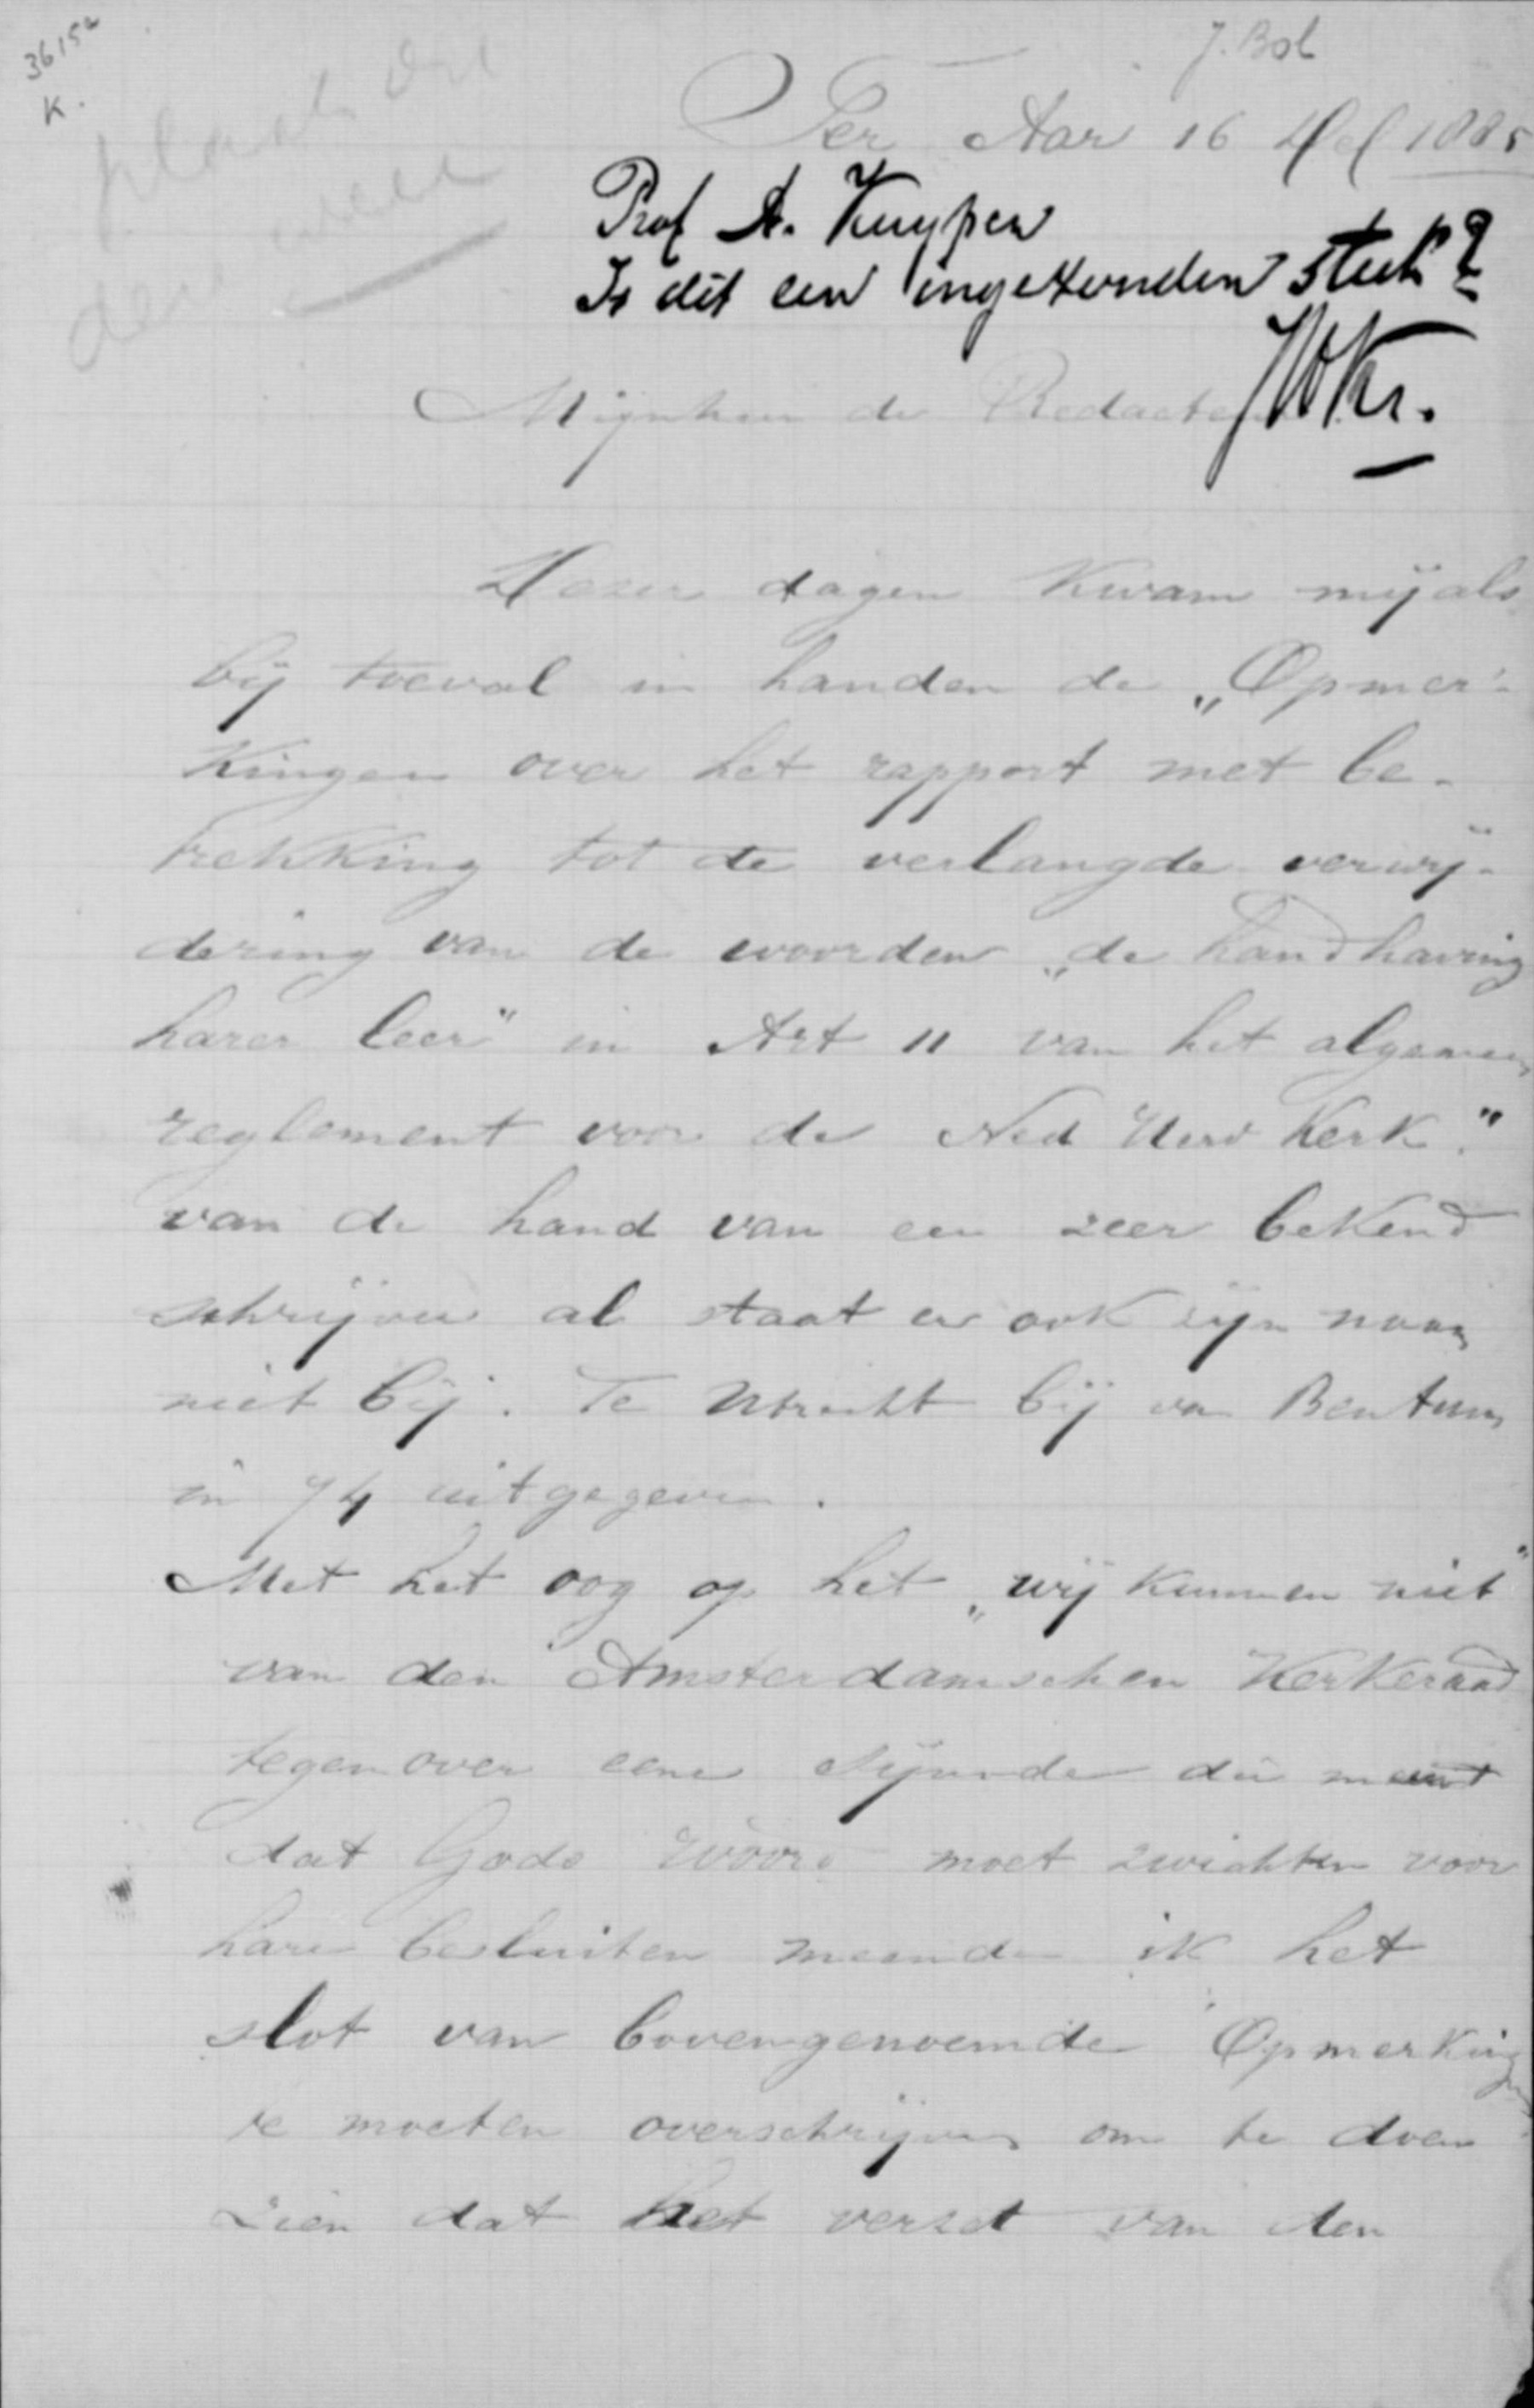 3615a
K.
J. Bol
plaats dit
deze week
Ter Aar 16 Dec 1885
Prof A. Kuyper
Is dit een ingezonden stuk?
JWKr.
Mijnheer de Redacteur
Dezer dagen kwam mij als
bij toeval in handen de „Opmer-
kingen over het rapport met be-
trekking tot de verlangde verwij-
dering van de woorden „de handhaving
harer leer" in Art 11 van het algemeen
reglement voor de Ned Herv Kerk."
van de hand van een zeer bekend
schrijver al staat er ook zijn naam
niet bij. Te Utrecht bij van Bentum
in 74 uitgegeven.
Met het oog op het „wij kunnen niet"
van den Amsterdamschen Kerkeraad
tegenover eene Synode die meent
dat Gods Woord moet zwichten voor
hare besluiten meende ik het
slot van bovengenoemde Opmerkingen
te moeten overschrijven om te doen
zien dat het verzet van den